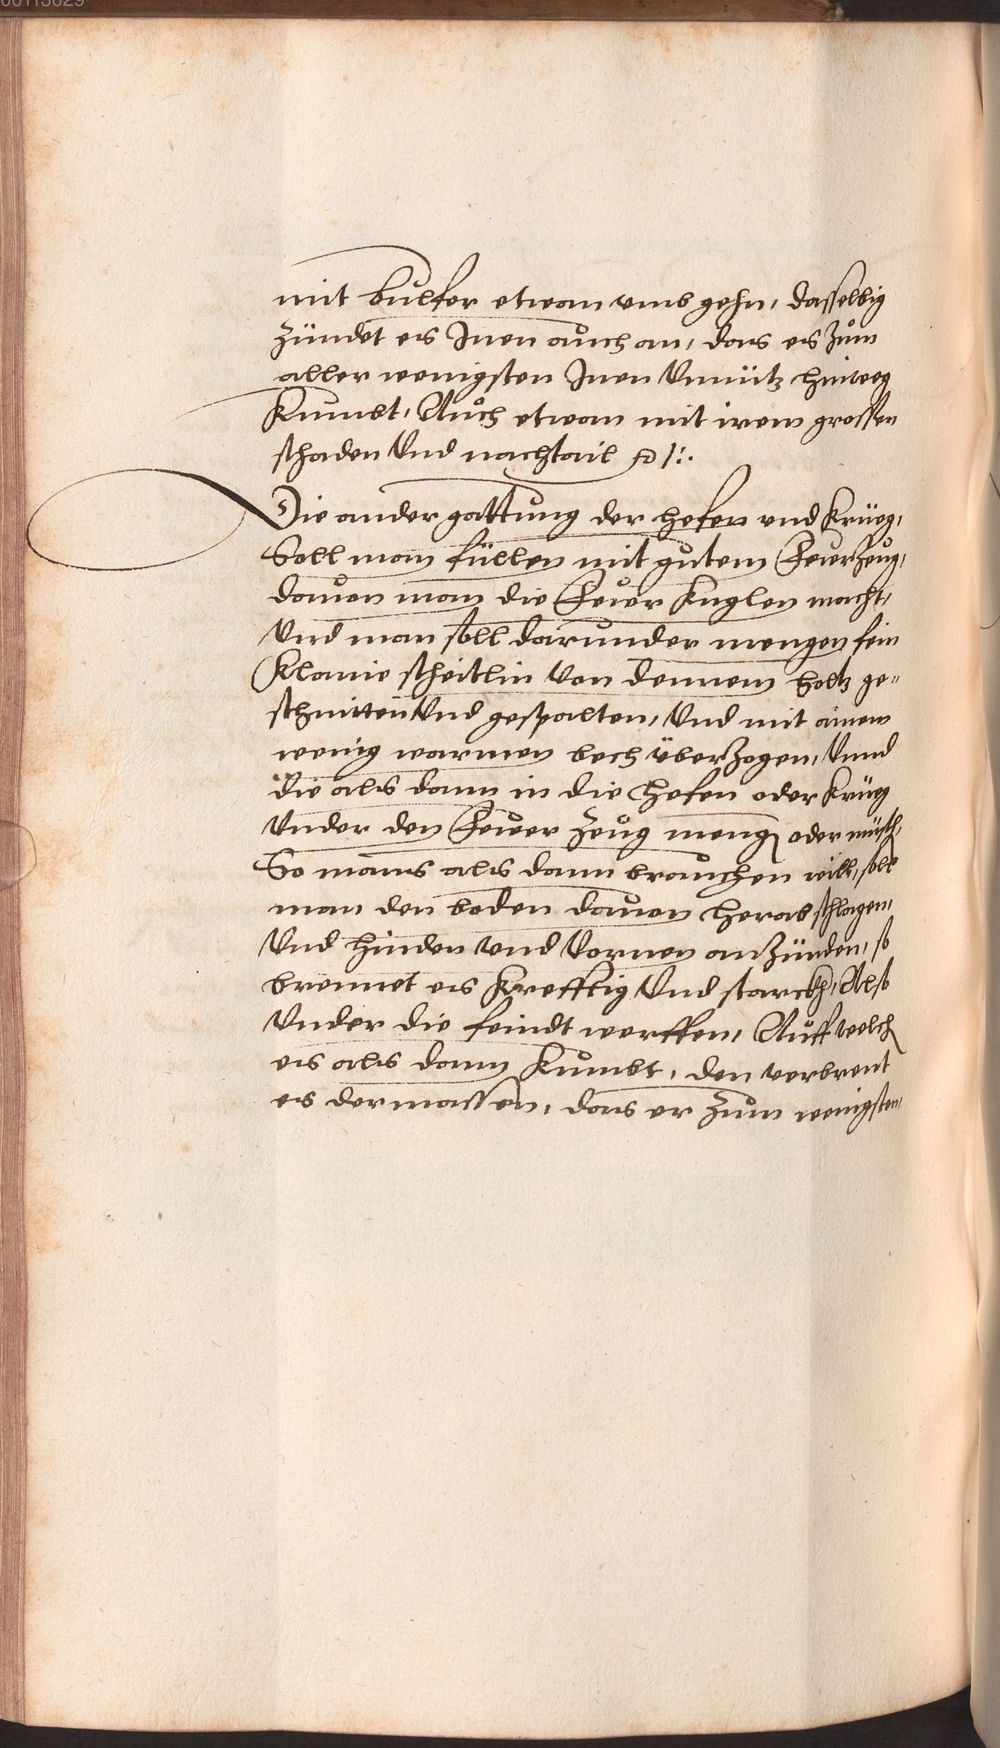 00113029
mit bulfer etwan vmb gehn, dasselbig
Zündet es Inen auch an, das es Zum
aller wenigsten Inen Vnnütz hinweg
Kumbt, Auch etwan mit irem grossen
schaden Vnd nachtail
Die ander gattung der hefen vnd krüeg,
Soll man füllen mit gutem Feuerzeug,
dauon man die Feuer Kuglen macht,
Vnd man soll darunder mengen fein
Klaine scheitlin von dennem holtz ge"
schnitten Vnd gespalten, Vnd mit ainem
wenig warmen bech überzogen, Vnnd
die als dann in die hefen oder krüeg
Vnder den Feuer Zeug meng oder müsch,
So mans als dann brauchen will, soll
man den boden dauon herab schlagen,
Vnd hinden vnd Vornen anzünden, so
brennet es Krefftig Vnd starckh, Also
Vnder die feindt werffen, Auff welch
es als dann Kumbt, den verbrent
es dermassen, das er Zum wenigsten,